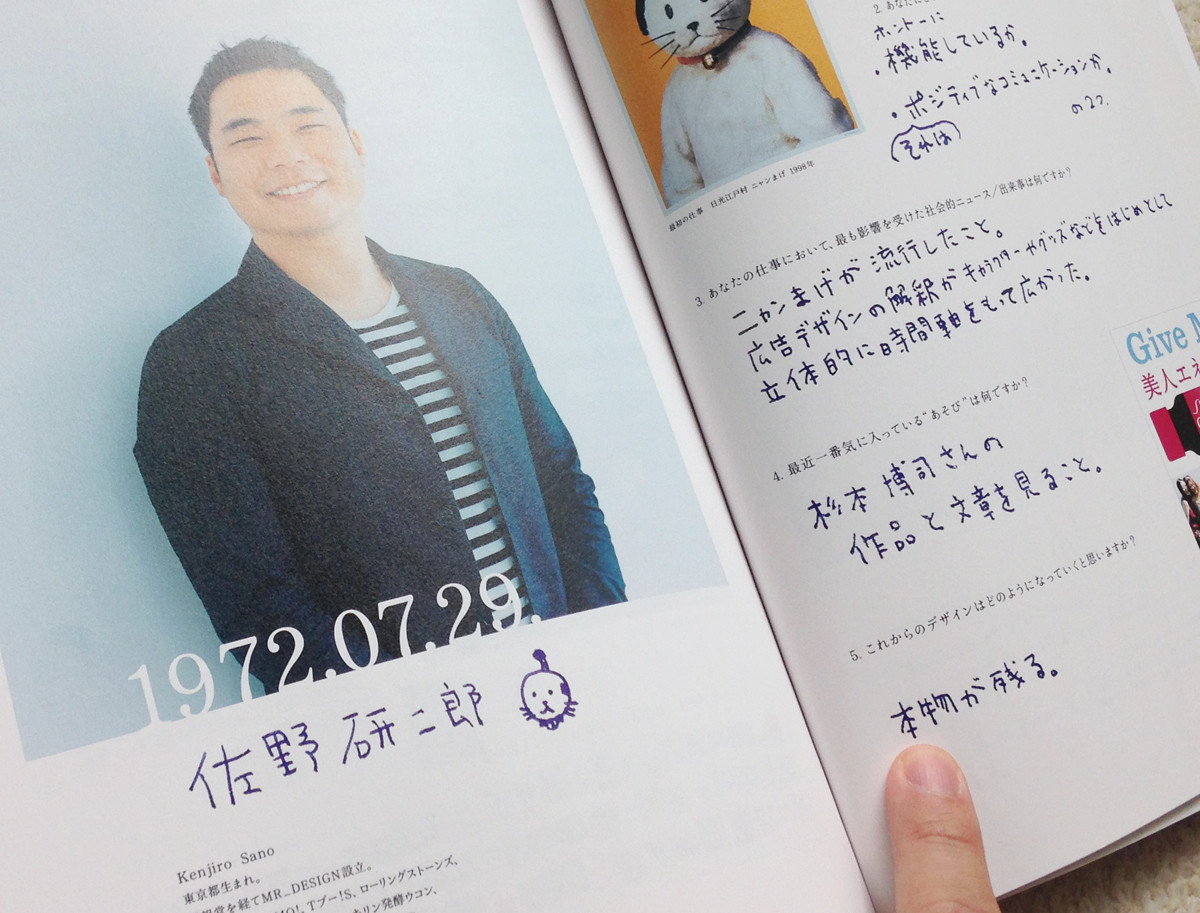 1972.07.29.
佐野 研二郎
Kenjiro Sano
東京都生まれ。
を経てMR_DESIGN設立。
Tブー!S、ローリングストーンズ、
リン発酵ウコン、
最初の仕事 日光江戸村 ニャンまげ 1998年
2.
ホントーに
・機能しているか。
・ポジティブなコミュニケーションか。
(それは)
の2つ。
3. あなたの仕事において、最も影響を受けた社会的ニュース/出来事は何ですか?
ニャンまげが流行したこと。
広告デザインの解釈がキャラクターやグッズなどをはじめとして
立体的に時間軸をもって広がった。
4. 最近一番気に入っている“あそび”は何ですか?
杉本 博司さんの
作品と文章を見ること。
5. これからのデザインはどのようになっていくと思いますか?
本物が残る。
Give
美人エネ